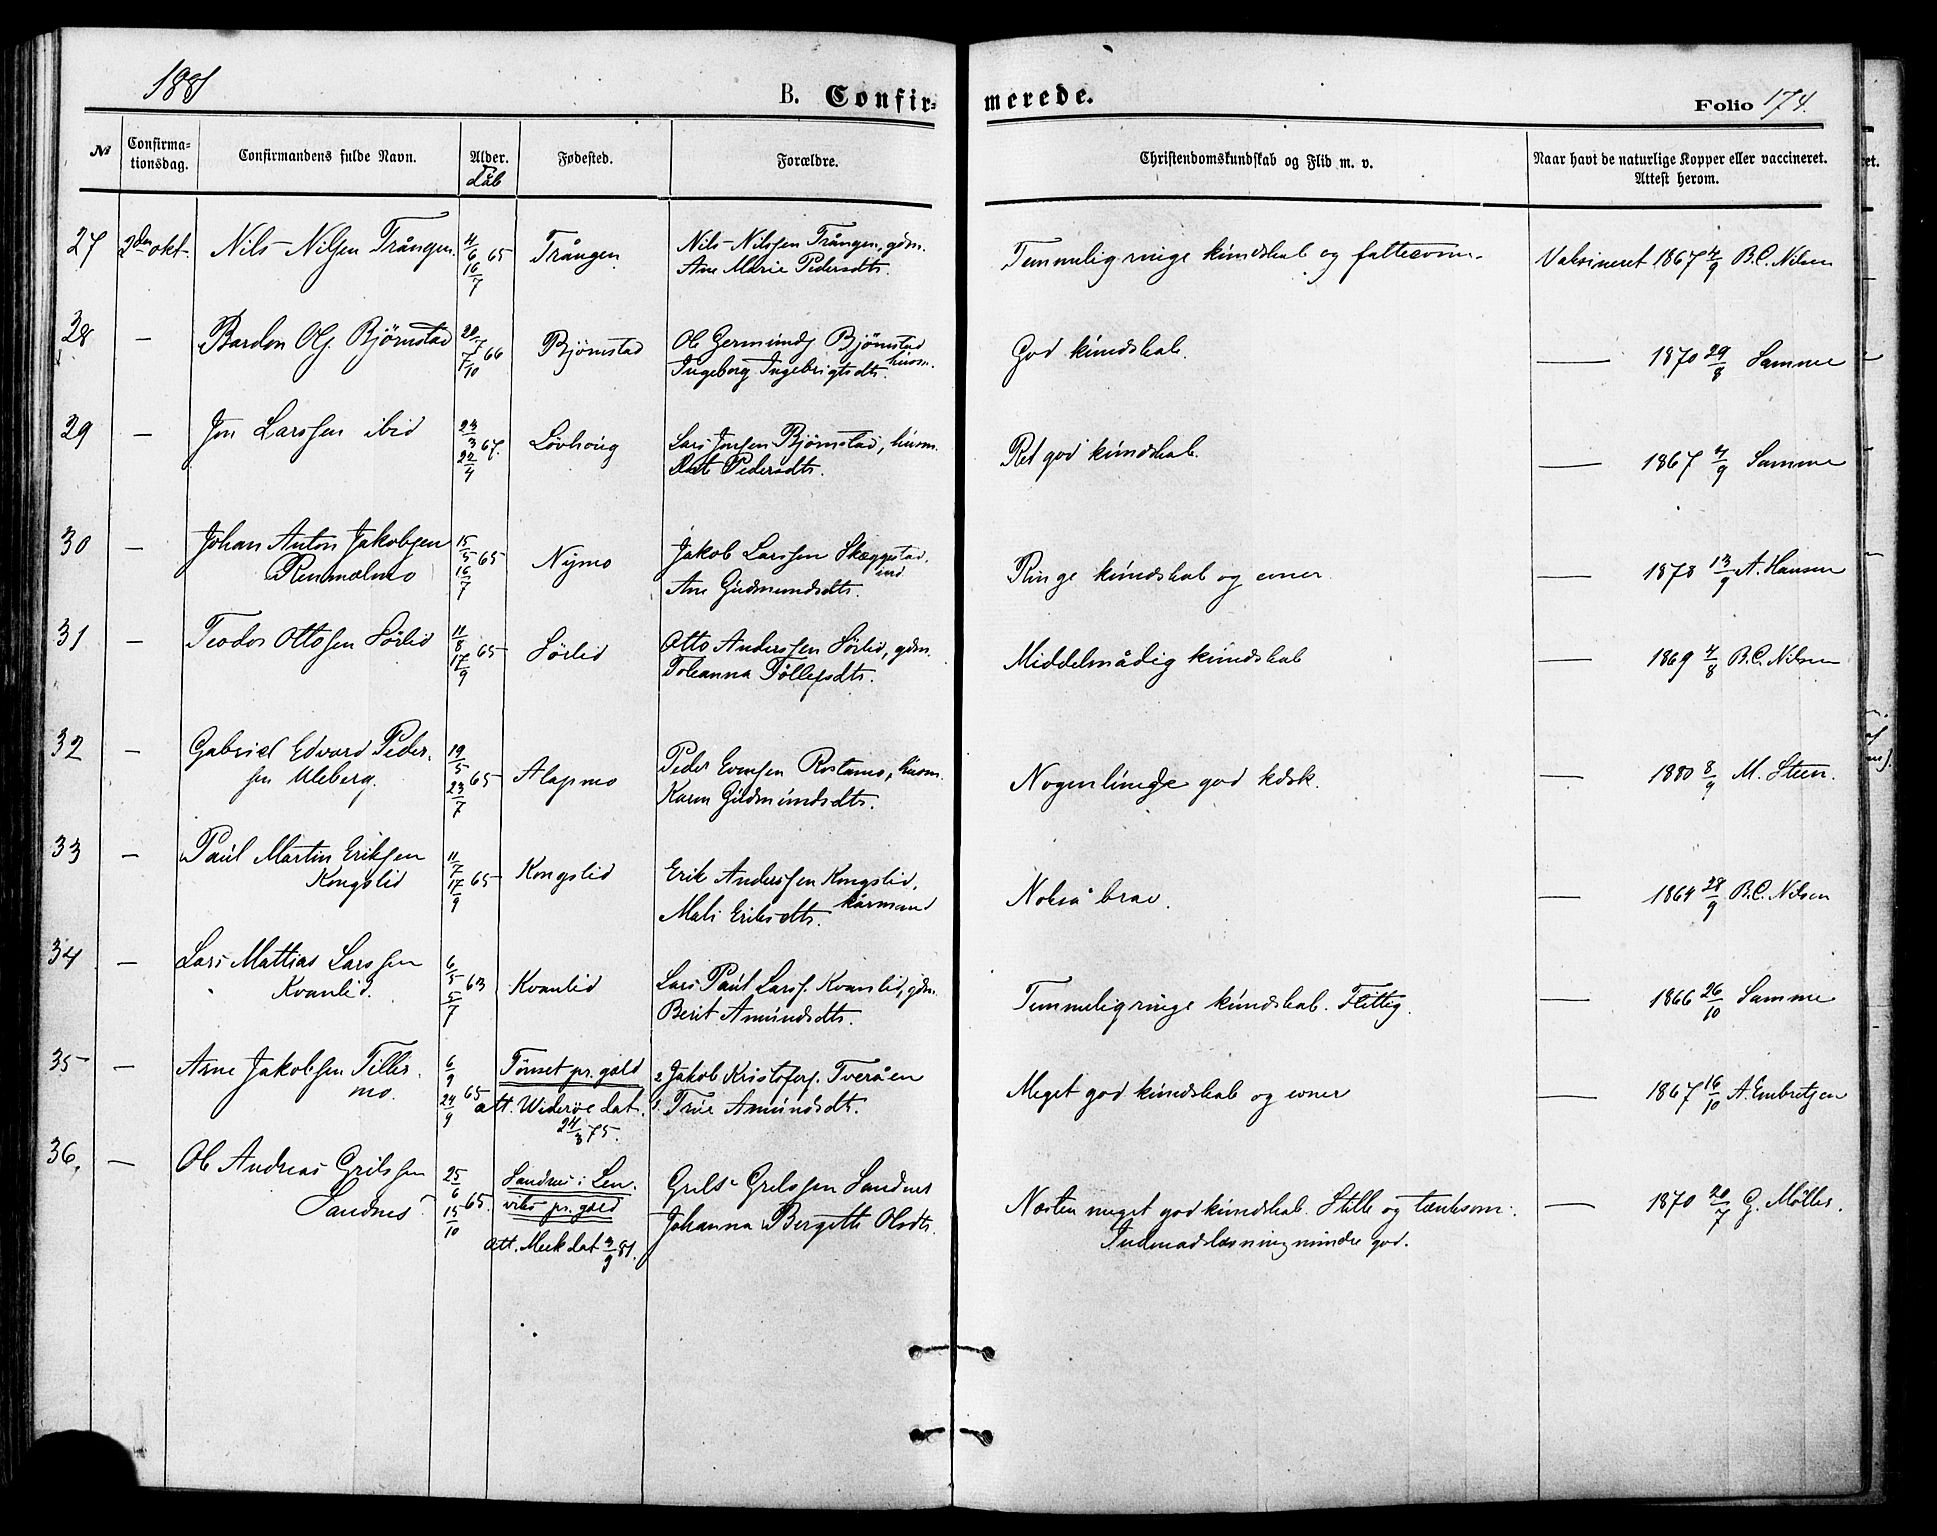 1881
B. Confir=
merede.
Folio 174.
№
Confirma=
tionsdag.
Confirmandens fulde Navn.
Alder.
dåb
Fødested.
Forældre.
Christendomskundskab og Flid m. v.
Naar havt de naturlige Kopper eller vaccineret.
Attest herom.
27 2den okt. Nils Nilsen Trången. 4/6 65 16/7 Trången Nils Nilssen Trången, gdm. Ane Marie Pedersdtr. Temmelig ringe kundskab og fatteevne. Vaksineret 1867 4/9 B.C. Nilsen
28 — Bardon Ols. Bjørnstad 20/7 66 7/10 Bjørnstad Ole Germunds. Bjørnstad husm. Ingeborg Ingebrigtsdtr. God kundskab. — 1870 29/8 Samme
29 — Jon Larssen ibid 23/3 67. 22/4 Løvhoug Lars Jonsen Bjørnstad, husm. Pedersdtr. Ret god kundskab. — 1867 4/9 Samme
30 — Johan Anton Jakobsen 15/5 65 16/7 Nymo Jakob Larssen Skæggestad, ind.
Renmælmo Ane Gudmundsdtr. Ringe kundskab og evner. — 1878 13/9 A. Hansen
31 — Teodor Ottosen Sørlid 11/8 65 17/9 Sørlid Otto Anderssen Sørlid, gdm. Johanna Tollefsdtr. Middelmådig kundskab — 1869 4/8 B.C. Nilsen
32 — Gabriel Edvard Peder-
sen Uleberg. 19/5 65 23/7 Alapmo Peder Evensen Rostamo, husm. Karen Gudmundsdtr. Nogenlunde god kdsk. — 1880 8/9 M. Steen.
33 — Paul Martin Eriksen
Kongslid 11/7 65 17/9 Kongslid Erik Anderssen Kongslid, kårmand Mali Eriksdtr. Nokså brav. — 1864 28/9 B.C. Nilsen
34 — Lars Mattias Larssen
Kvanlid. 6/5 63 5/7 Kvanlid Lars Paul Larss. Kvanlid, gdm. Berit Amundsdtr. Temmelig ringe kundskab. Flittig. — 1866 26/10 Samme
35 — Arne Jakobsen Tiller-
mo. 6/9 65 24/9 Tønset pr.gæld att. Widerøe dat. 24/3 75. 2 Jakob Kristofers. Tveråen 1. True Amundsdtr. Meget god kundskab og evner — 1867 16/10 A. Embretsen
36. — Ole Andreas Grelssen
Sandnes. 25/6 65. 15/10 Sandnes i Len-
viks pr.gæld att. Meek dat 3/9 81. Grels Grelssen Sandnes Johanna Bergette Olsdtr. Næsten meget god kundskab. Stille og tænksom.
Indenadslæsning mindre god. — 1870 20/7 G. Møller.